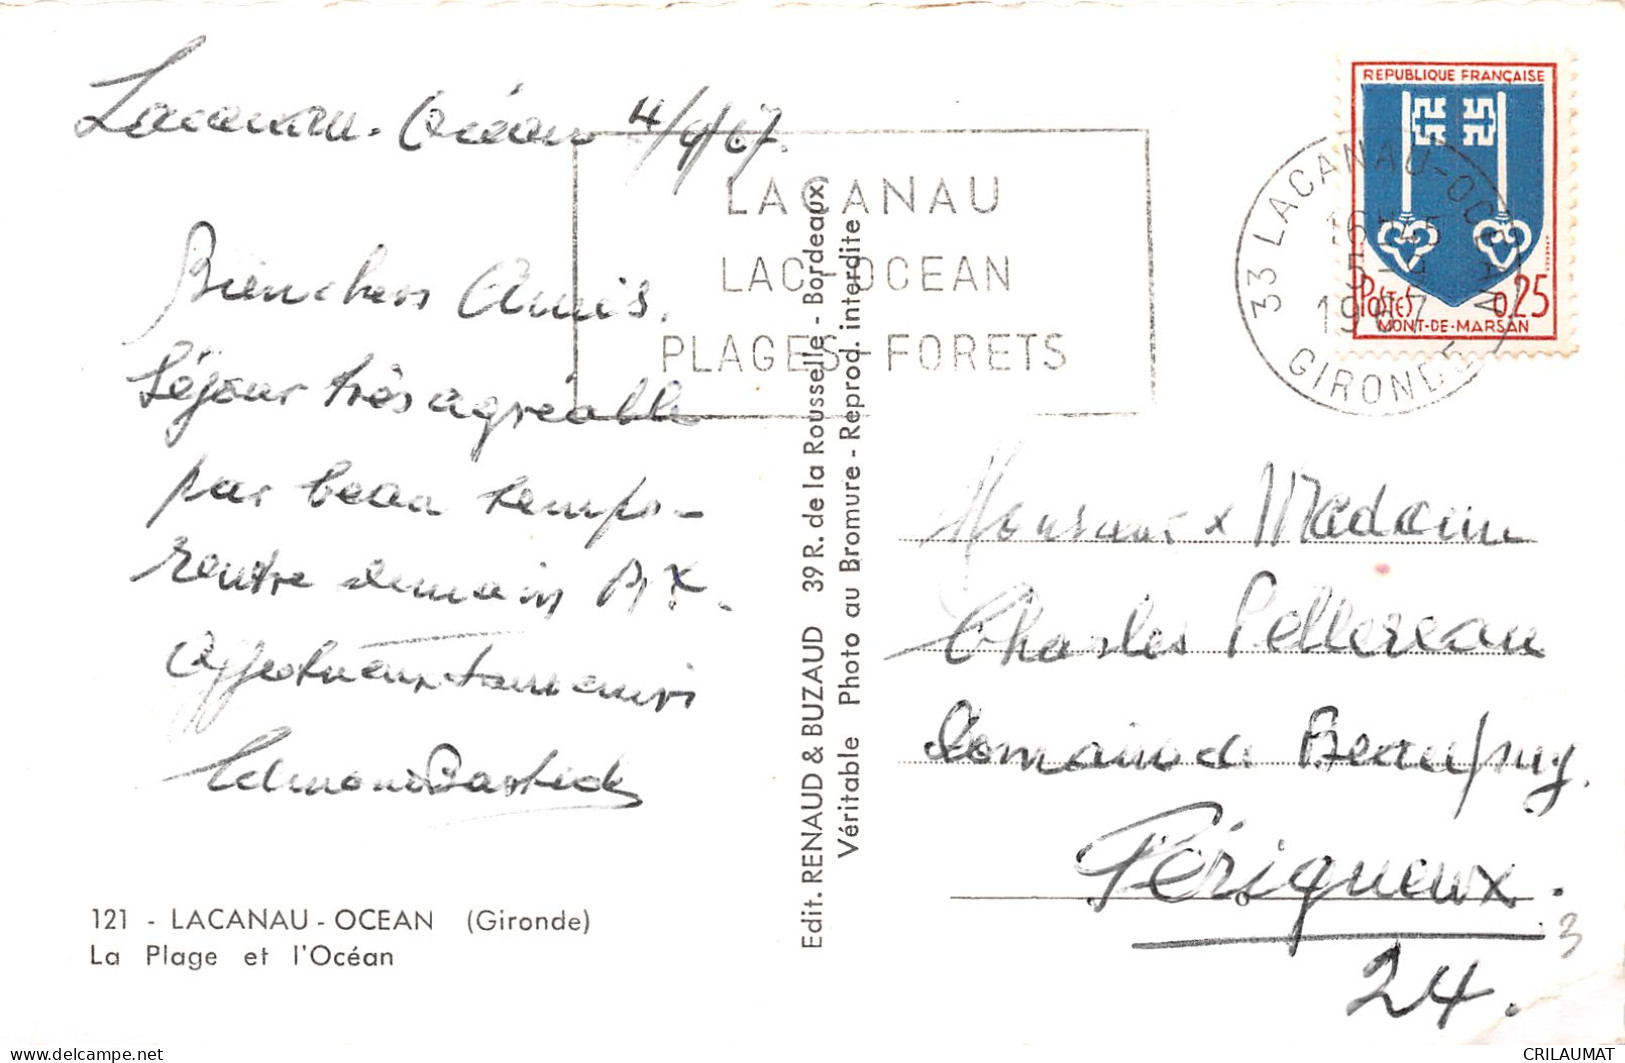 Lacanau-Océan 4/4/67.
Bien chers Amis.
Séjour très agréable
par beau temps -
rentre demain PX.
Affectueusement
Edmond Bastide
121 - LACANAU - OCEAN (Gironde)
La Plage et l'Océan
LACANAU
LAC-OCEAN
PLAGES-FORETS
Edit. RENAUD & BUZAUD 39 R. de la Rousselle - Bordeaux
Véritable Photo au Bromure - Reprod. interdite
33 LACANAU-OCEAN
16H45
5-4
1967
GIRONDE
REPUBLIQUE FRANÇAISE
POSTES 0,25
MONT-DE-MARSAN
Monsieur & Madame
Charles Pellereau
Domaine de Beaupuy.
Périgueux.
24.
3
delcampe.net
CRILAUMAT